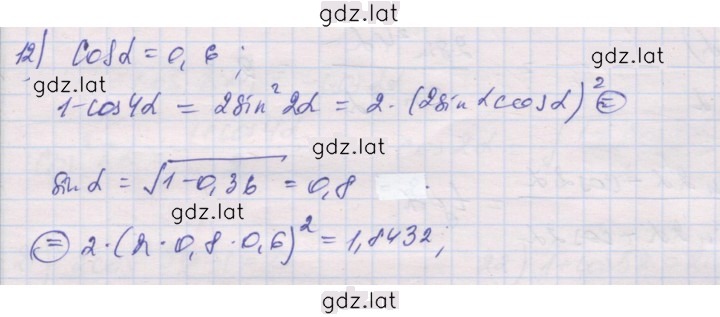 gdz.lat
12) cosα = 0,6;
gdz.lat gdz.lat
1-cos4α = 2sin²2α = 2·(2sinαcosα)² =
gdz.lat
sinα = √1-0,36 = 0,8
gdz.lat
= 2·(2·0,8·0,6)² = 1,8432;
gdz.lat